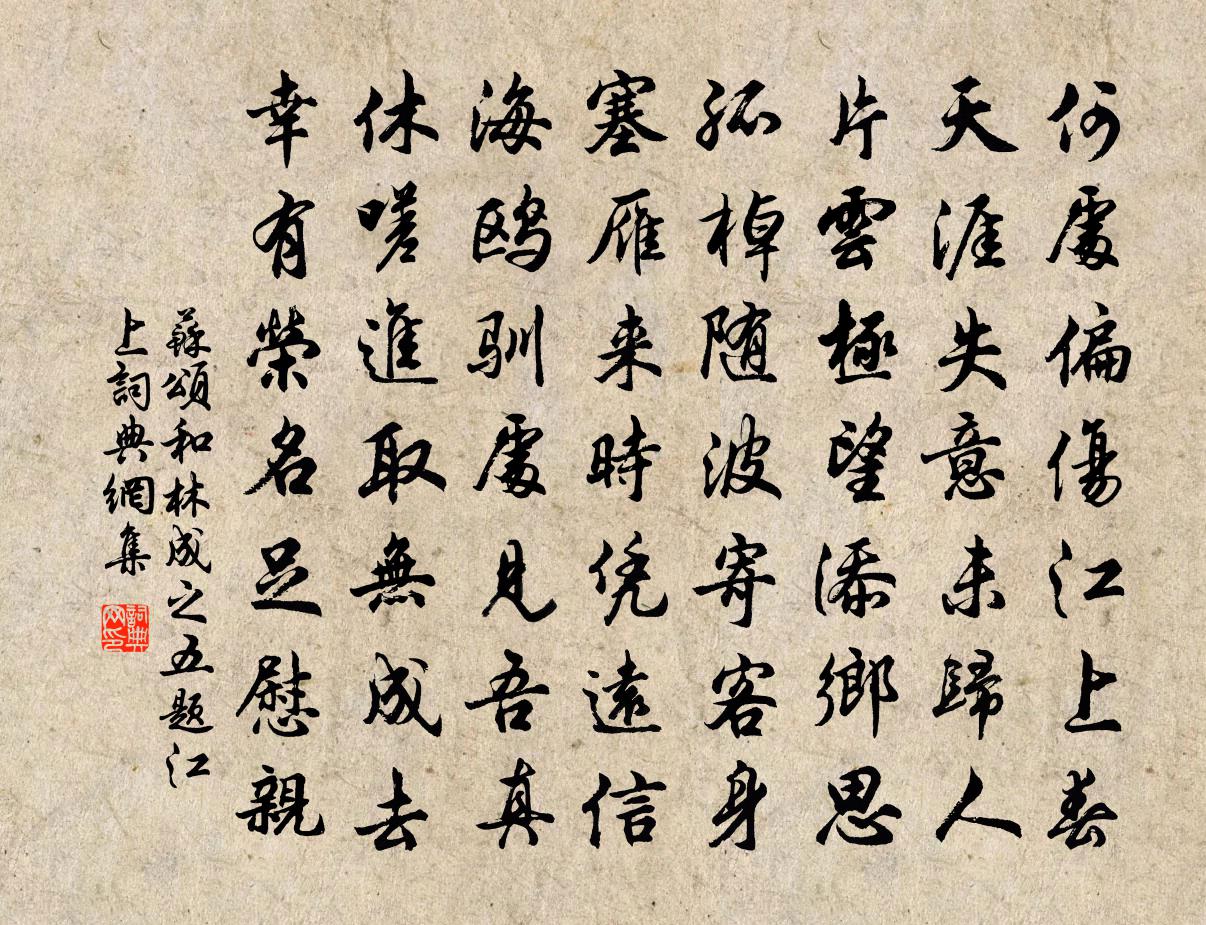 何處偏傷江上春
天涯失意未歸人
片雲極望添鄉思
孤棹随波寄客身
塞雁来時凭遠信
海鸥馴處見吾真
休嗟進取無成去
幸有榮名足慰親
蘇頌和林成之五题江
上詞典網集
詞典網印